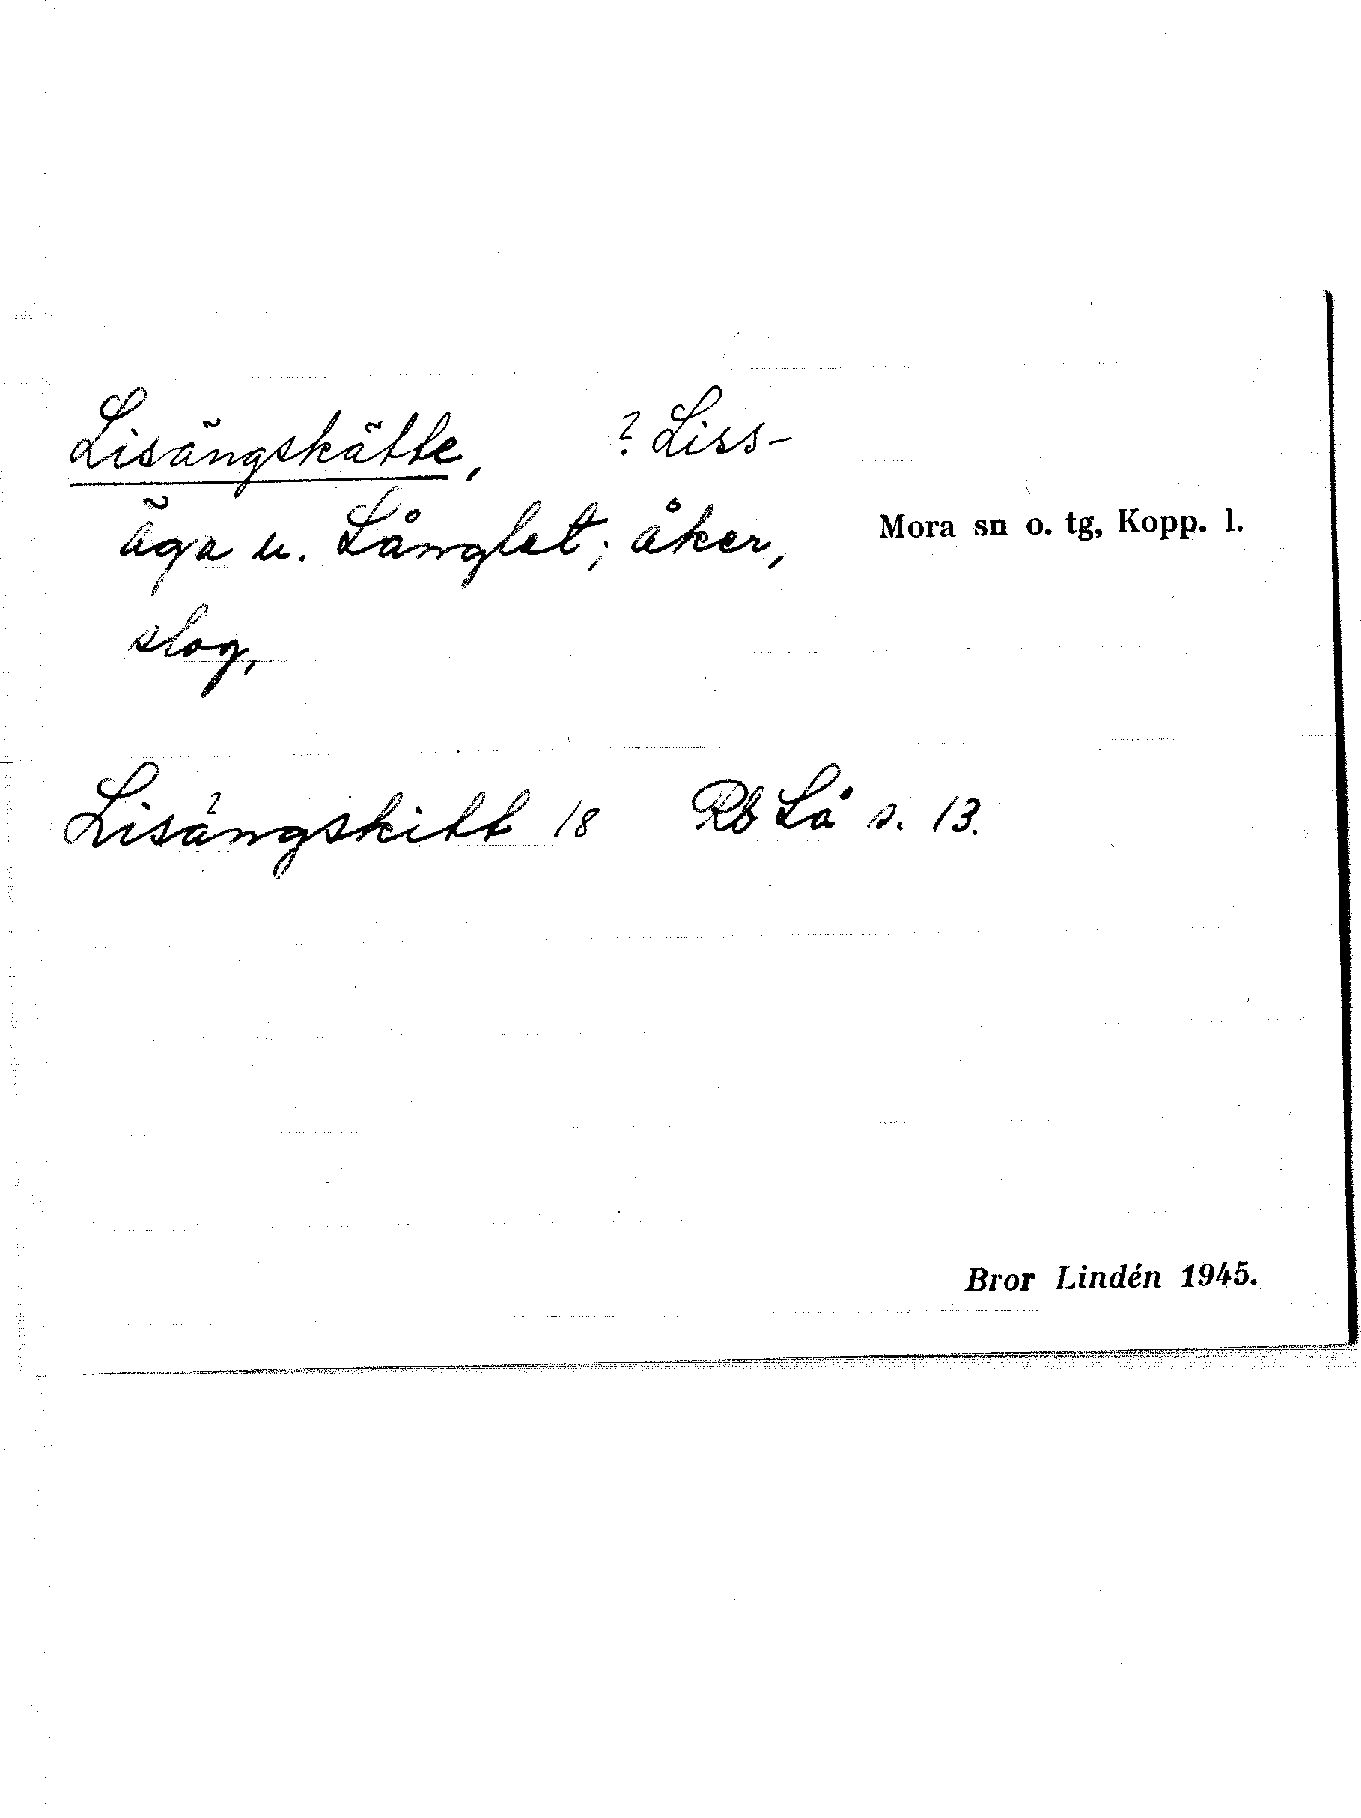 Lisängskätte, ? Liss-
äga u. Långlet; åker,
Mora sn o. tg, Kopp. l.
slog,
Lisängskitt 18 Rb Lå s. 13.
Bror Lindén 1945.